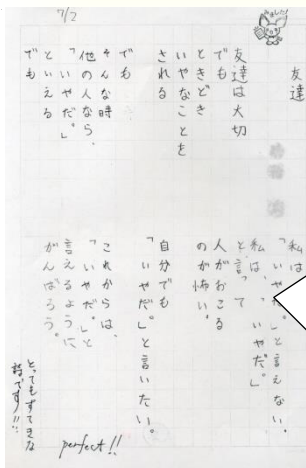 みました！
友達
友達は大切
でも
ときどき
いやなことを
される
でも
そんな時
他の人なら、
「いやだ。」
といえる
でも
私は
「いやだ。」と言えない。
私は、「いやだ。」
と言って
人がおこる
のが怖い。
自分でも
「いやだ。」と言いたい。
これからは、
「いやだ。」と
言えるように
がんばろう。
とってもすてきな
詩です!!
perfect!!
7/2